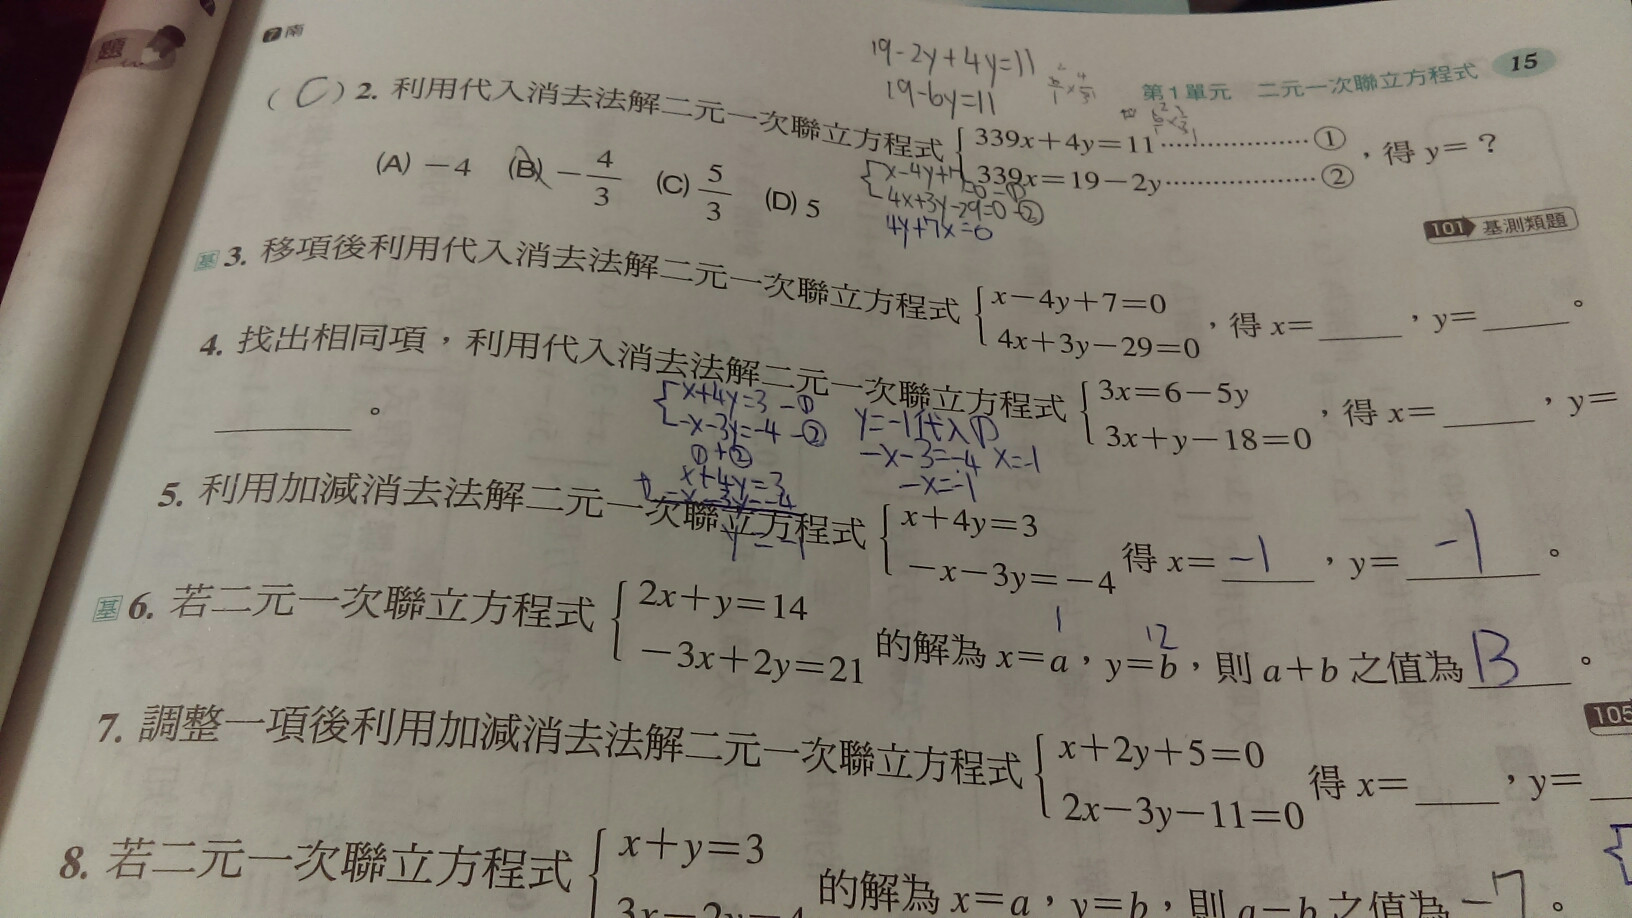 題
7 南
第1單元 二元一次聯立方程式 15
19-2y+4y=11
19-6y=11
( C ) 2. 利用代入消去法解二元一次聯立方程式 { 339x+4y=11⋯⋯⋯⋯①
339x=19-2y⋯⋯⋯⋯② ,得 y=?
(A) -4 (B) -4/3 (C) 5/3 (D) 5
101 基測類題
4x+3y-29=0 -②
4y+7x=0
基 3. 移項後利用代入消去法解二元一次聯立方程式 { x-4y+7=0
4x+3y-29=0 ,得 x=____,y=____。
4. 找出相同項,利用代入消去法解二元一次聯立方程式 { 3x=6-5y
3x+y-18=0 ,得 x=____,y=
____。
{ x+4y=3 -①
-x-3y=-4 -②
①+②
x+4y=3
-x-3y=-4
y=-1
y=-1代入①
-x-3=-4 x=-1
-x=-1
5. 利用加減消去法解二元一次聯立方程式 { x+4y=3
-x-3y=-4 得 x=-1,y=-1。
基 6. 若二元一次聯立方程式 { 2x+y=14
-3x+2y=21 的解為 x=a,y=b,則 a+b 之值為 13。
1 12
105
7. 調整一項後利用加減消去法解二元一次聯立方程式 { x+2y+5=0
2x-3y-11=0 得 x=____,y=
8. 若二元一次聯立方程式 { x+y=3
3x-2y=4 的解為 x=a,y=b,則 a-b 之值為 -7。